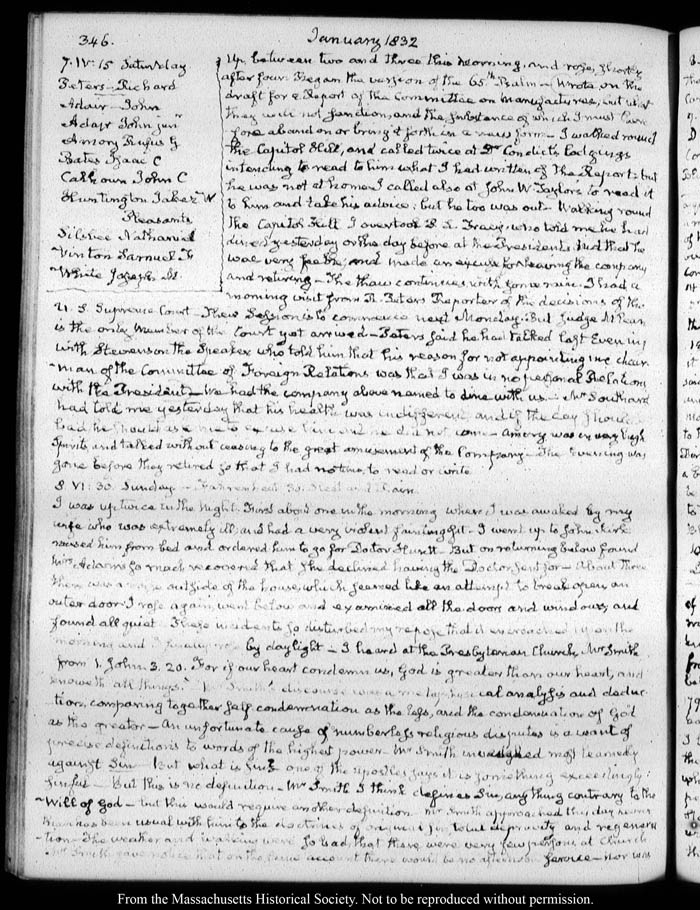 346.
January 1832
7. IV:15 Saturday
Peters—Richard
Adair—John
Adair John junr
Amory Rufus G
Bates Isaac C
Calhoun John C
Huntington Jabez W
Pleasants
Silsbee Nathaniel
Vinton Samuel F
White Joseph M.
Up between two and three this morning, and rose, shortly
after four. Began the version of the 65th Psalm—Wrote on the
draft for a Report of the Committee on Manufactures, but what
they will not sanction, and the substance of which I must there-
fore abandon or bring it forth in a new form—I walked round
the Capitol Hill, and called twice at Dr Condict's lodgings
intending to read to him what I had written of the Report: but
he was not at home. I called also at John W. Taylor's to read it
to him and take his advice; but he too was out—Walking round
the Capitol Hill I overtook Tracy, who told me he had
dined yesterday or the day before at the President's and that he
was very feeble, and made an excuse for leaving the company
and retiring—The thaw continues with some rain—I had a
morning visit from R. Peters Reporter of the decisions of the
U. S. Supreme Court—Their Session is to commence next Monday. But Judge M'Lean
is the only member of the Court yet arrived—Peters said he had talked last Evening
with Stevenson the Speaker who told him that his reason for not appointing me chair-
man of the Committee of Foreign Relations was that I was in no personal Relations
with the President—We had the company above named to dine with us—Mr Southard
had told me yesterday that his health was indifferent and if the day should
be bad he should ask me to excuse him and he did not come—Amory was in very high
Spirits and talked without ceasing to the great amusement of the Company—The Evening was
gone before they retired so that I had no time to read or write
8. VI:30. Sunday—Fahrenheit 30. Sleet and Rain.
I was up twice in the Night. First about one in the morning when I was awaked by my
wife who was extremely ill, and had a very violent fainting fit—I went up to John Kirk
raised him from bed and ordered him to go for Doctor Huntt—But on returning below found
Mrs Adams so much recovered that she declined having the Doctor sent for—About three
there was a noise outside of the house, which seemed like an attempt to break open an
outer door. I rose again, went below and examined all the doors and windows, and
found all quiet—These incidents so disturbed my repose that it encroached upon the
morning and I finally rose by daylight—I heard at the Presbyterian Church, Mr Smith
from 1. John 3. 20. For if our heart condemn us, God is greater than our heart, and
knoweth all things. Mr Smith's discourse was a metaphysical analysis and deduc-
tion, comparing together self condemnation as the less, and the condemnation of God
as the greater—An unfortunate cause of numberless religious disputes is a want of
precise definitions to words of the highest power—Mr Smith inveighed most learnedly
against Sin—But what is Sin? one of the apostles says it is something exceedingly
sinful—But this is no definition—Mr Smith I think defines Sin, any thing contrary to the
Will of God—but this would require another definition—Mr Smith approached this day nearer
than has been usual with him to the doctrines of original sin, total depravity and regenera-
tion—The weather and walking were so bad, that there were very few persons at Church
Mr Smith gave notice that on the same account there would be no afternoon service—Nor was
From the Massachusetts Historical Society. Not to be reproduced without permission.